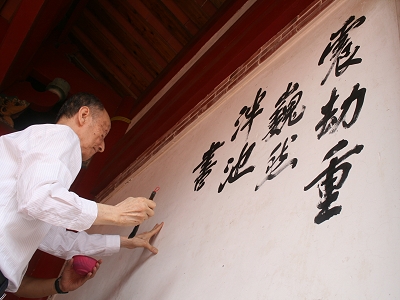 震劫重
巍然
泮池
書